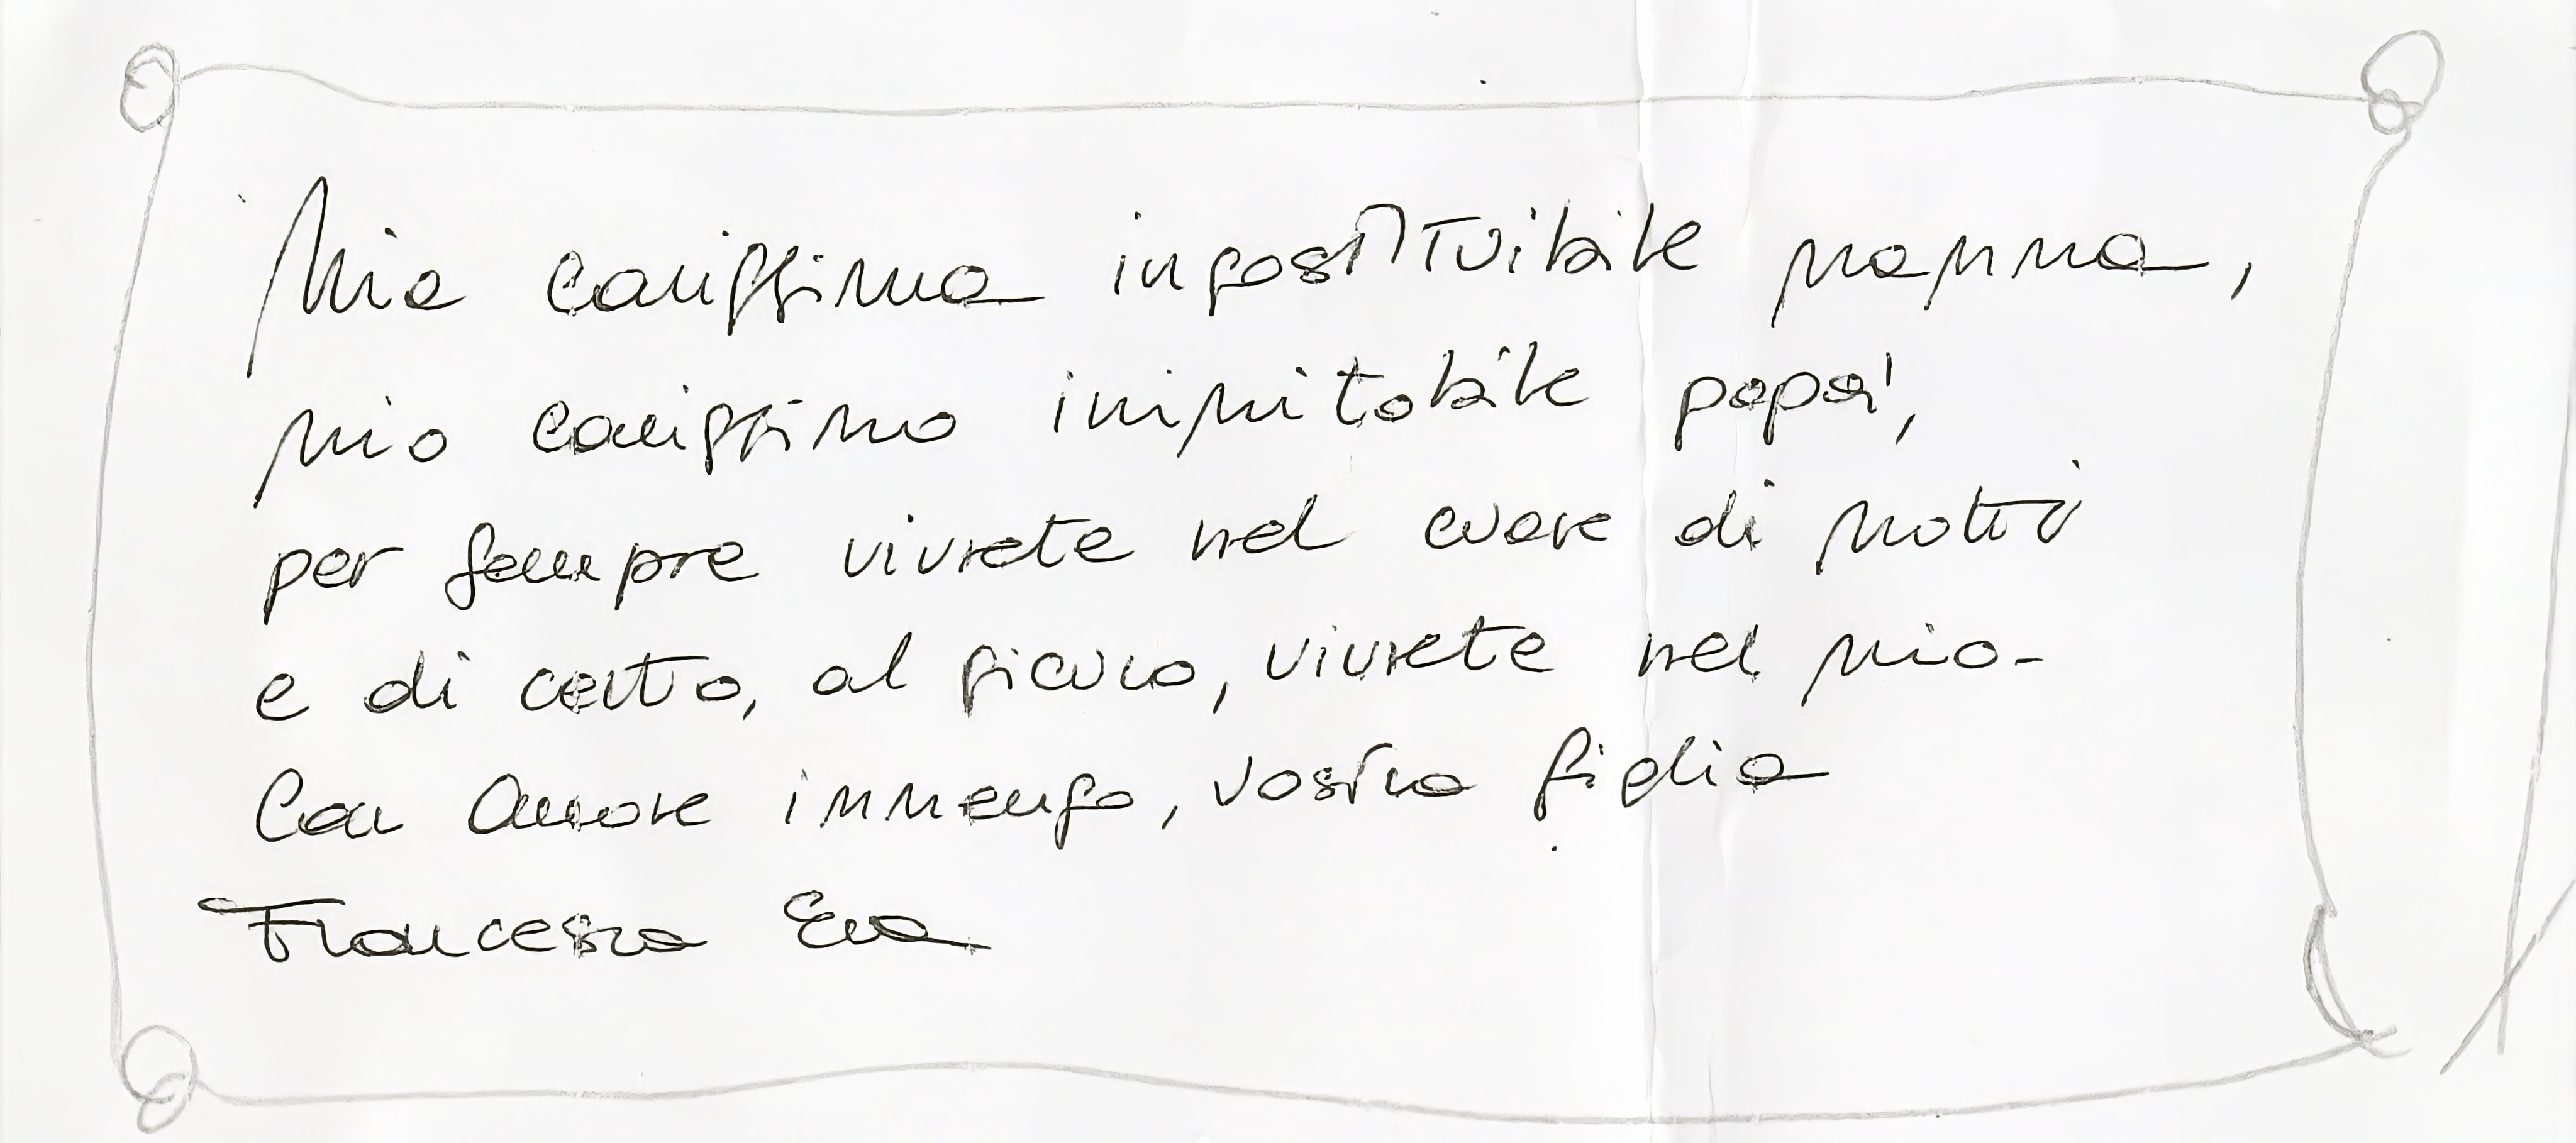 Mia carissima insostituibile mamma,
mio carissimo inimitabile papà,
per sempre vivrete nel cuore di molti
e di certo, al sicuro, vivrete nel mio-
Con Amore immenso, vostra figlia
Francesca Eva